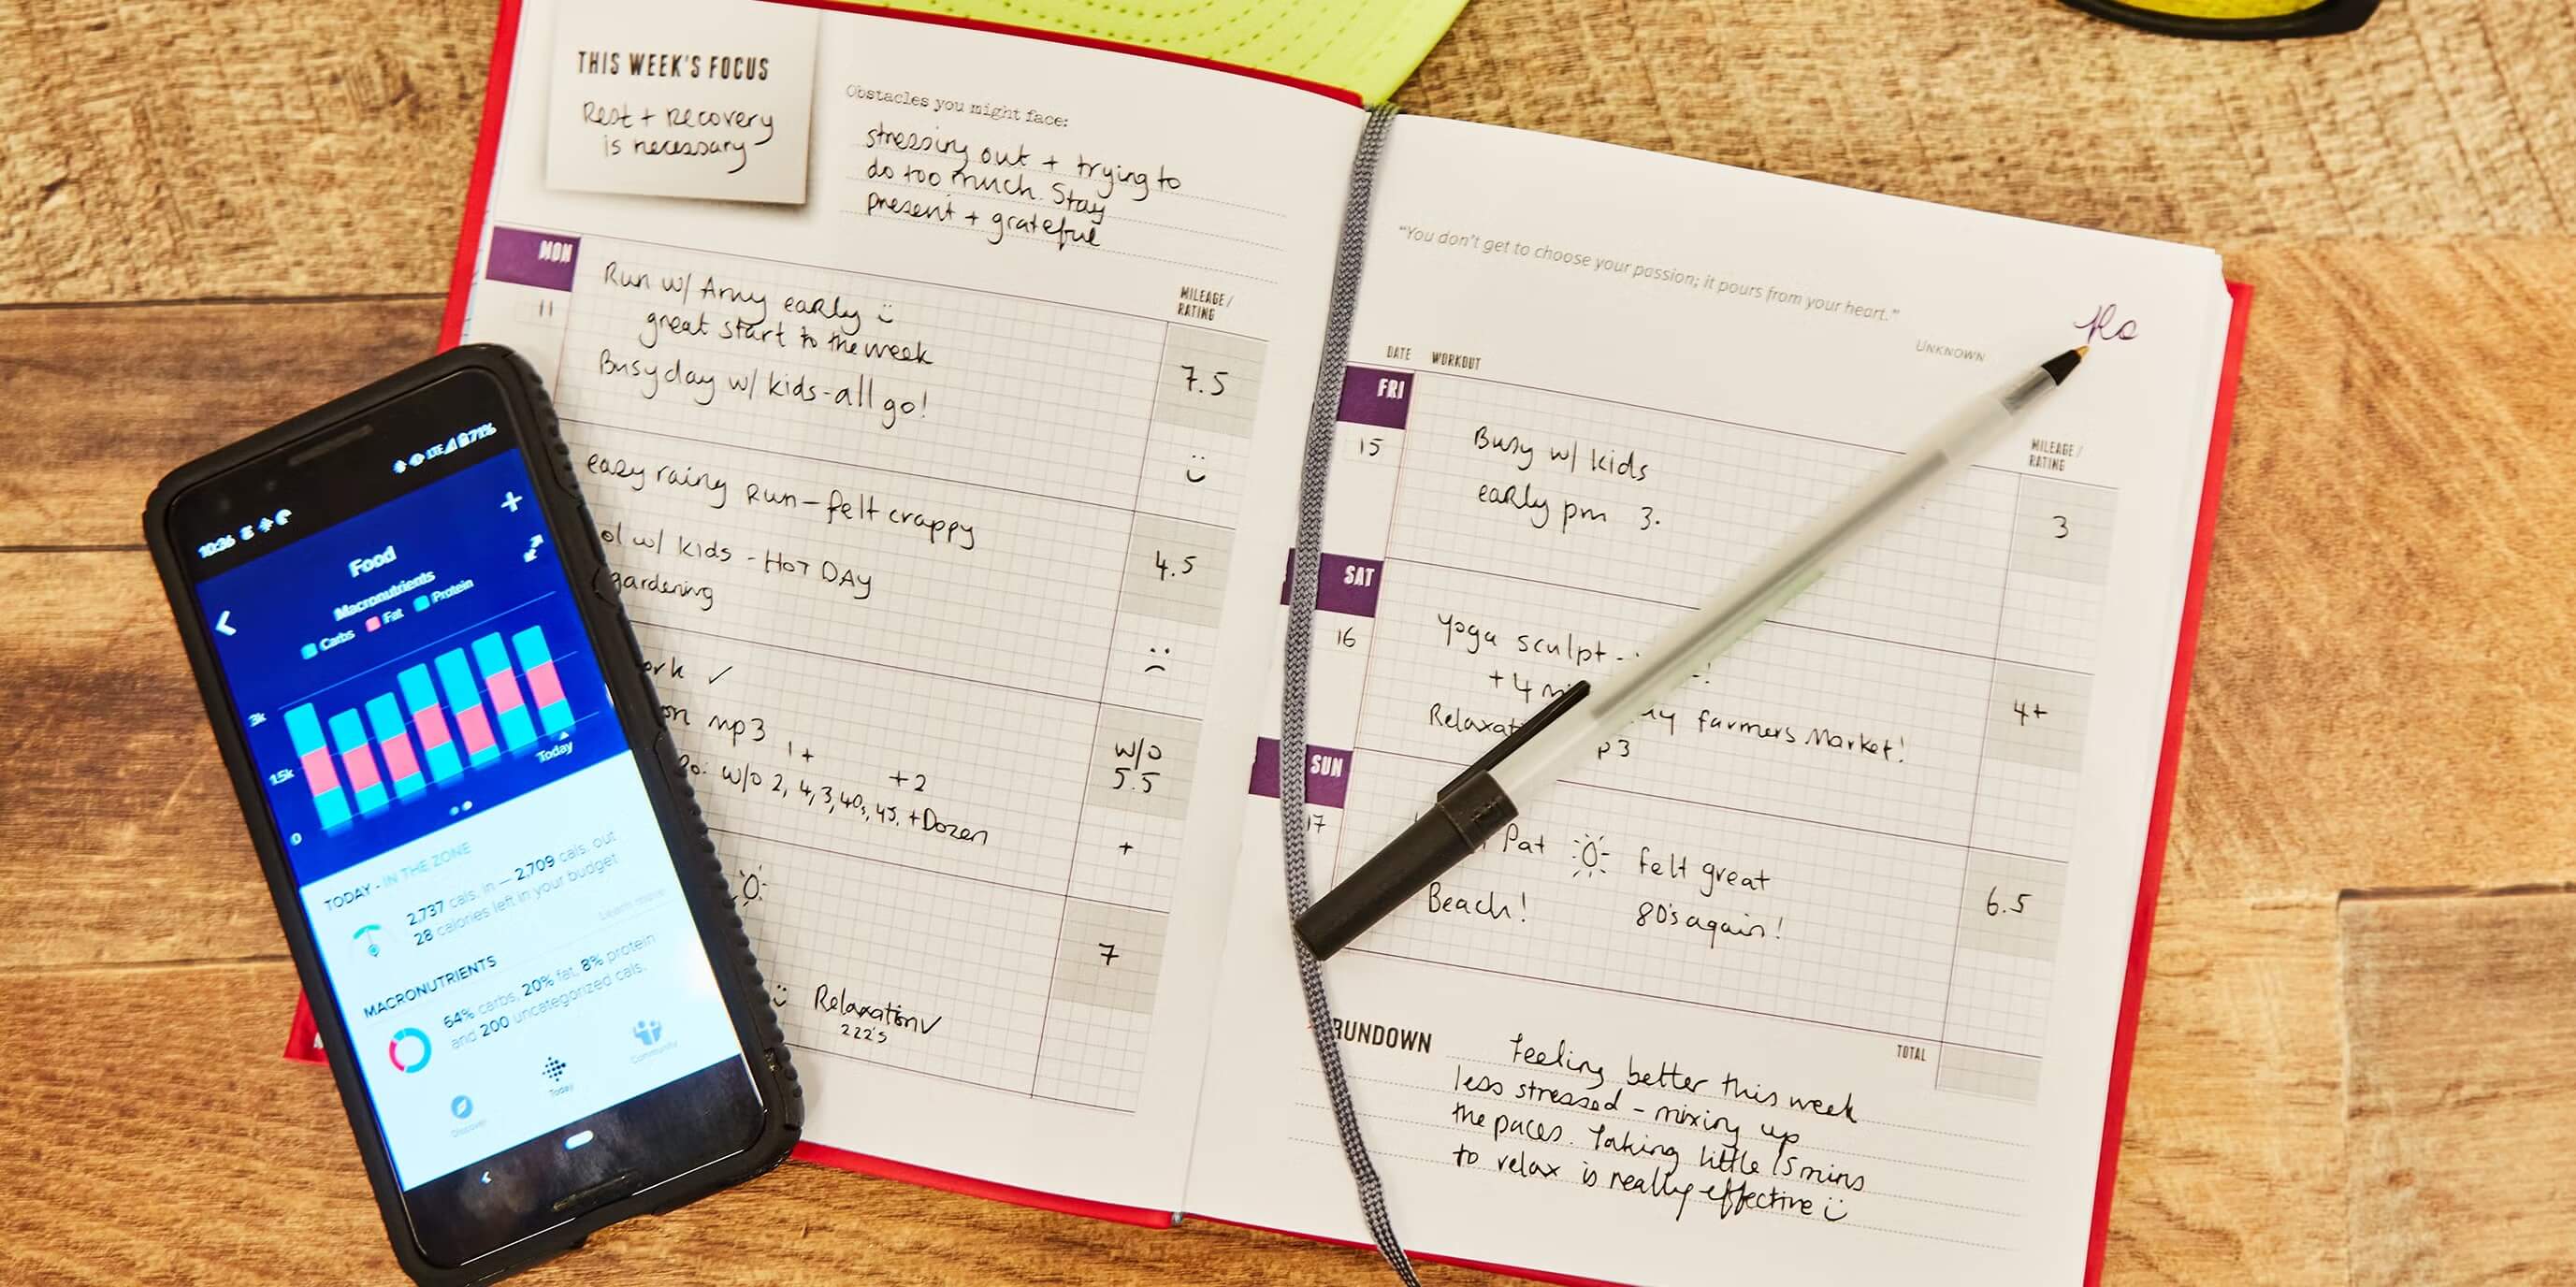 THIS WEEK'S FOCUS
Rest + recovery
is necessary
Obstacles you might face:
stressing out + trying to
do too much. Stay
present + grateful
MON
11
Run w/ Amy early
great start to the week
Busy day w/ kids-all go!
MILEAGE/
RATING
7.5
easy rainy run - felt crappy
w/ kids - HOT DAY
gardening
4.5
✓
mp3
1+ +2
w/o 2, 4, 3, 40, 45, + Dozen
w/o
5.5
+
7
Relaxation ✓
222's
"You don't get to choose your passion; it pours from your heart."
UNKNOWN
DATE WORKOUT
MILEAGE/
RATING
FRI
15
Busy w/ kids
early pm 3.
3
SAT
16
Yoga sculpt -
+ 4
farmers market!
p3
4+
SUN
17
Pat felt great
Beach! 80's again!
6.5
RUNDOWN
TOTAL
Feeling better this week
less stressed - mixing up
the paces. Taking little 15 mins
to relax is really effective
10:36
LTE 71%
+
Food
Macronutrients
Carbs Fat Protein
3k
1.5k
0
Today
TODAY - IN THE ZONE
2,737 cals. in — 2,709 cals. out
28 calories left in your budget
Learn more
MACRONUTRIENTS
64% carbs, 20% fat, 8% protein
and 200 uncategorized cals.
Discover
Today
Community